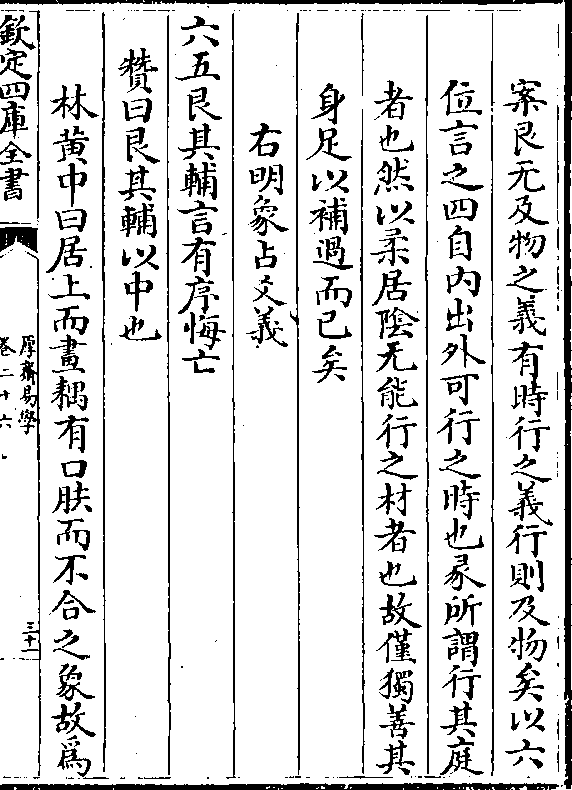 案艮无及物之義有時行之義行則及物矣以六
位言之四自内出外可行之時也彖所謂行其庭
者也然以柔居陰无能行之材者也故僅獨善其
身足以補過而已矣
右明象占爻義
六五艮其輔言有序悔亡
贊曰艮其輔以中也
林黄中曰居上而畫耦有口肤而不合之象故爲
欽定四庫全書
厚齋易學
卷二十六
三十一